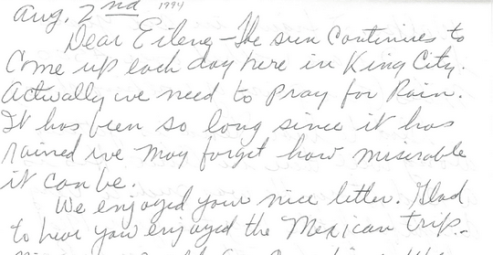 Aug. 2nd 1994
Dear Eilene - The sun continues to
come up each day here in King City.
Actually we need to pray for Rain.
It has been so long since it has
rained we may forget how miserable
it can be.
We enjoyed your nice letter. Glad
to hear you enjoyed the Mexican trip.